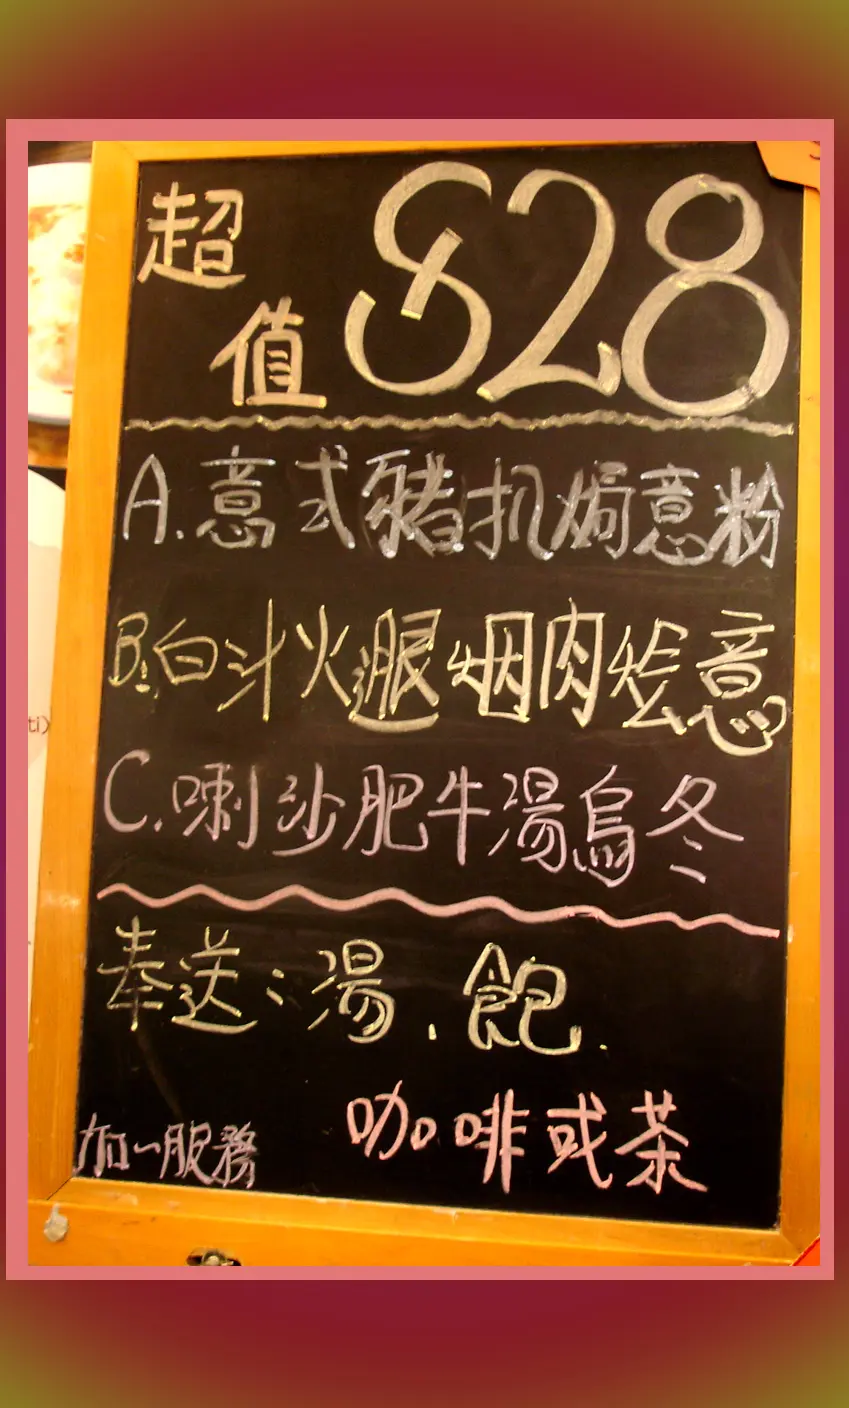 超值 $28
A.意式豬扒焗意粉
B.白汁火腿烟肉烩意
C.喇沙肥牛湯烏冬
奉送：湯、飽.
咖啡或茶
加一服務
ti)